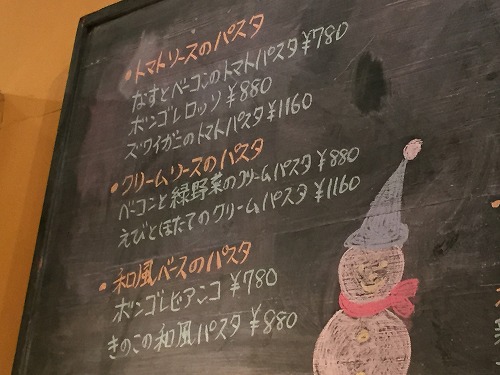 ・トマトソースのパスタ
なすとベーコンのトマトパスタ ¥780
ボンゴレロッソ ¥880
ズワイガニのトマトパスタ ¥1160
・クリームソースのパスタ
ベーコンと緑野菜のクリームパスタ ¥880
えびとほたてのクリームパスタ ¥1160
・和風ベースのパスタ
ボンゴレビアンコ ¥780
きのこの和風パスタ ¥880